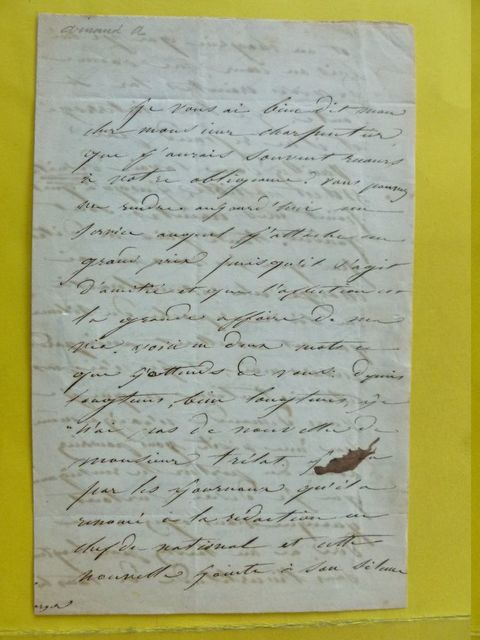 arnaud A
Je vous ai bien dit mon
cher monsieur charpentier
que j'aurais souvent recours
à votre obligeance. vous pouvez
me rendre aujourd'hui un
service auquel j'attache un
grand prix puisqu'il s'agit
d'amitié et que l'affection est
la grande affaire de ma
vie. voici en deux mots ce
que j'attends de vous. depuis
longtems, bien longtems, je
n'ai pas de nouvelle de
monsieur trélat
par les journaux qu'il a
renoncé à la rédaction en
chef du national et cette
nouvelle jointe à son silence